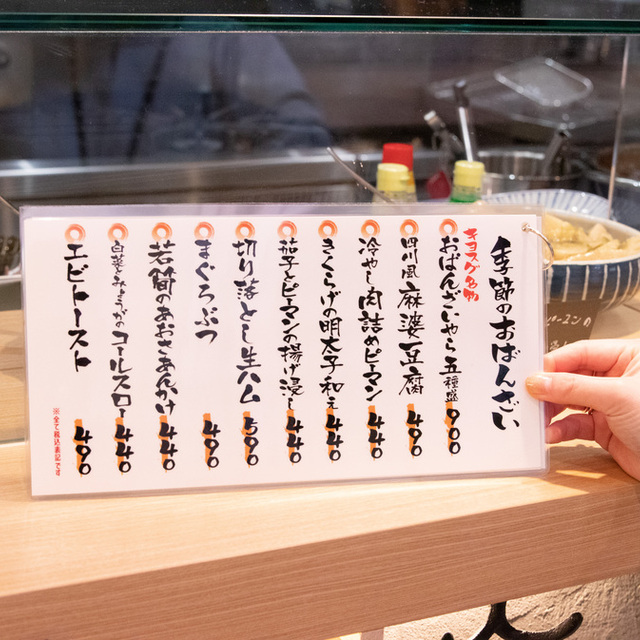 季節のおばんざい
キヨスグ名物
おばんざいやら五種盛 900
四川風麻婆豆腐 490
冷やし肉詰めピーマン 440
きくらげの明太子和え 440
茄子とピーマンの揚げ浸し 440
切り落とし生ハム 590
まぐろぶつ 490
若筍のあおさあんかけ 440
白菜とみょうがのコールスロー 440
エビトースト 490
※全て税込表記です